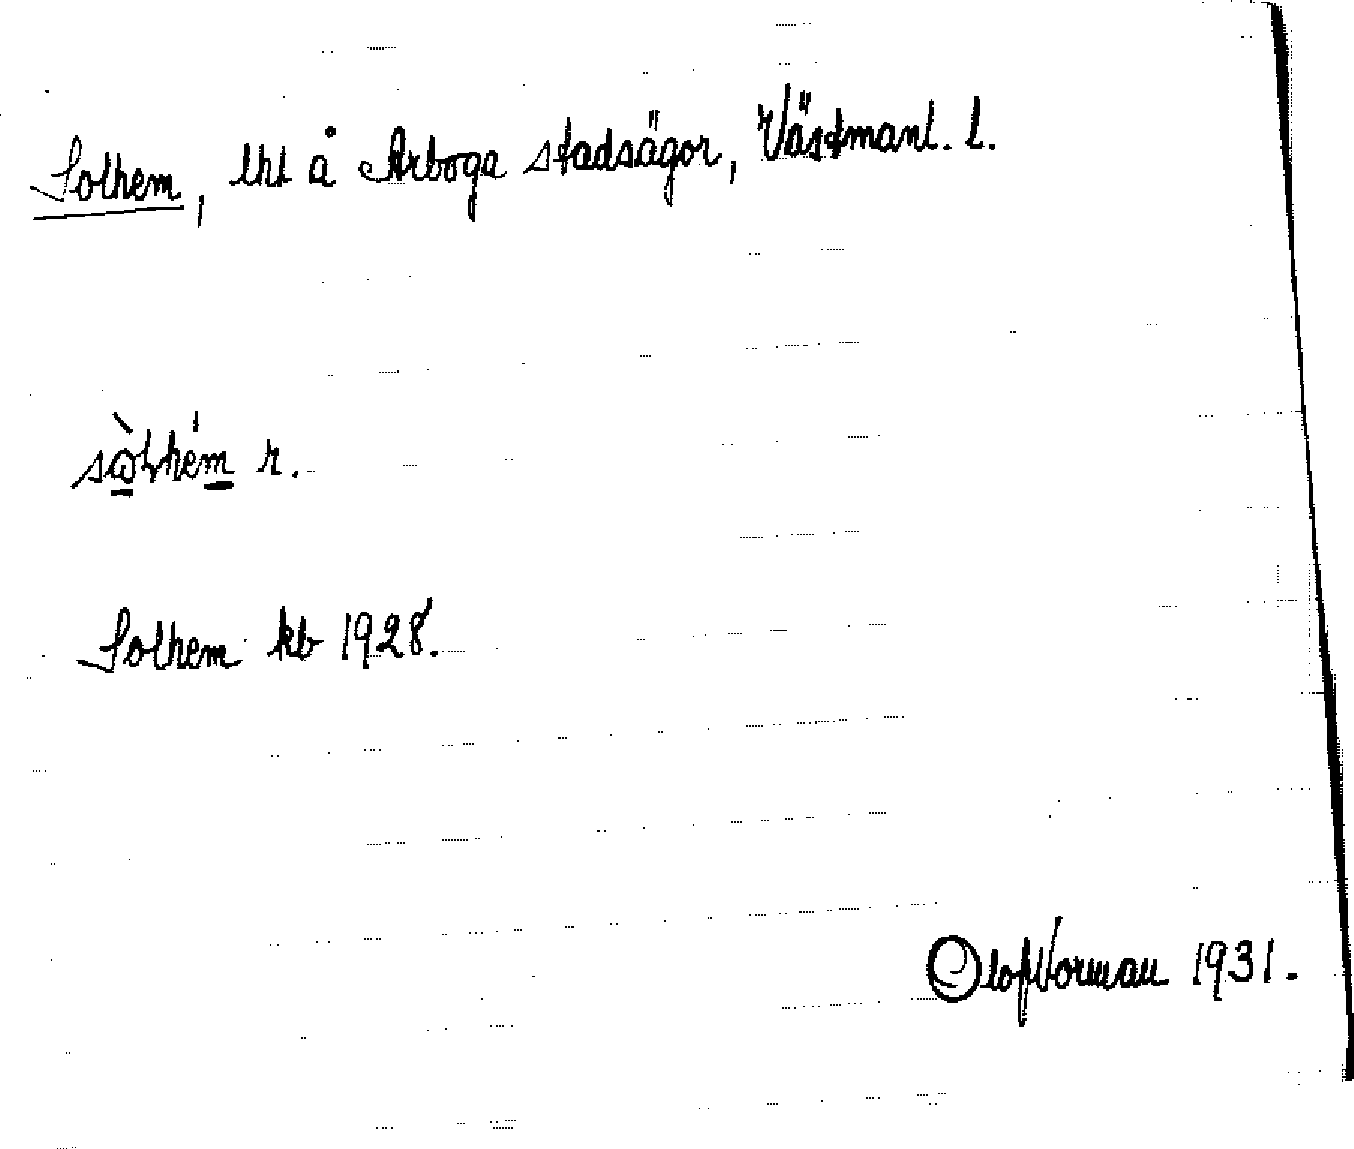 Solhem, lht å Arboga stadsägor, Västmanl. l.
sòlhém r.
Solhem kb 1928.
Olof Vorman 1931.